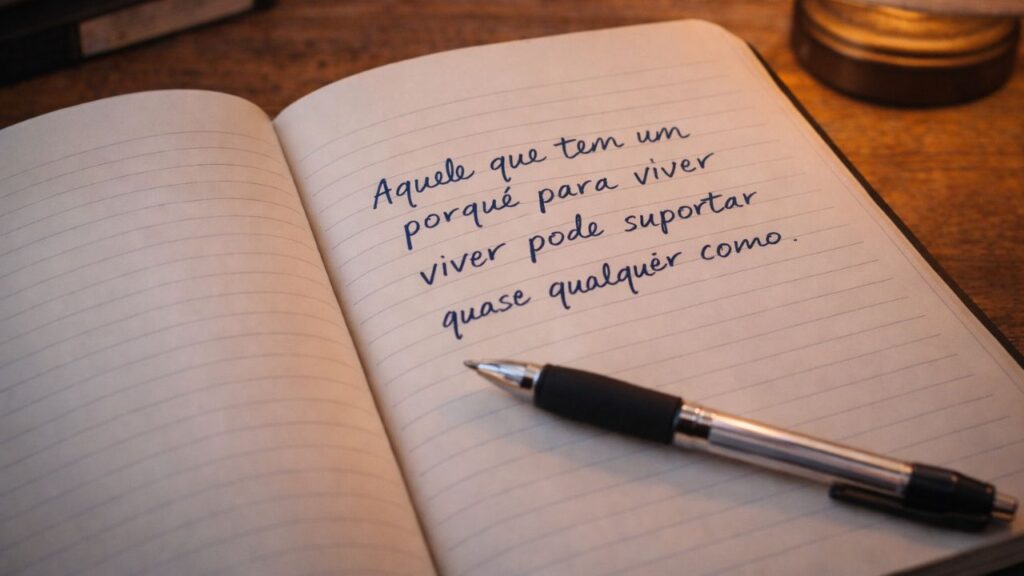 Aquele que tem um
porqué para viver
viver pode suportar
quase qualquér como.